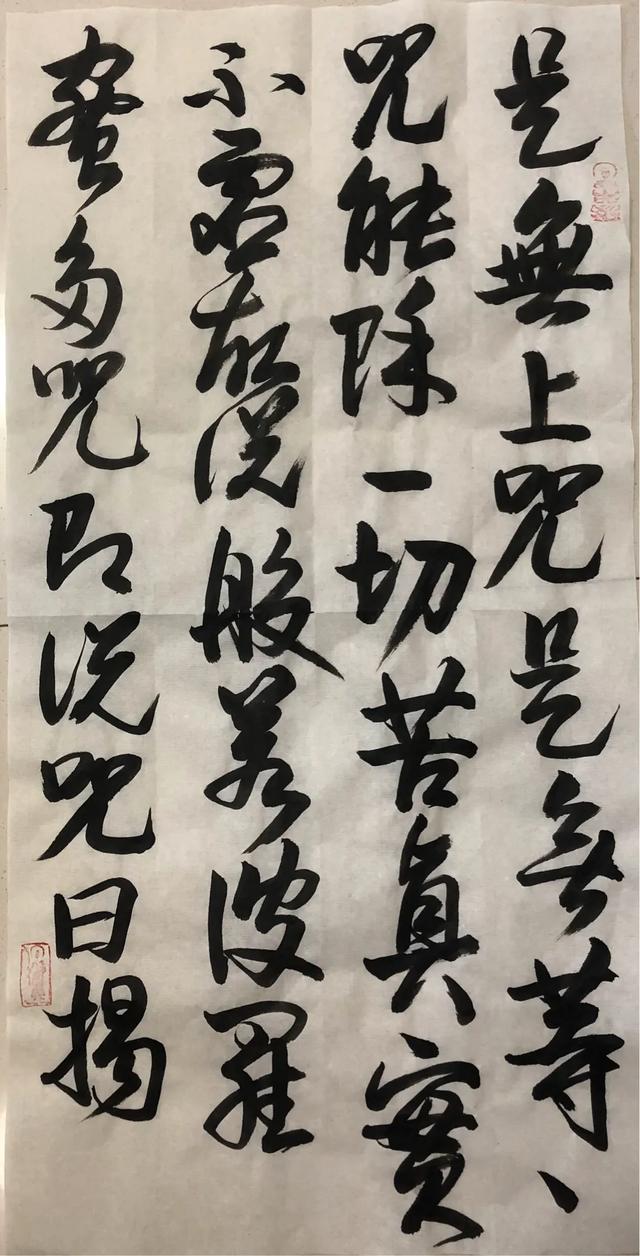 是無上咒是無等、
咒能除一切苦真實
不虛故说般若波羅
蜜多咒即说咒曰揭